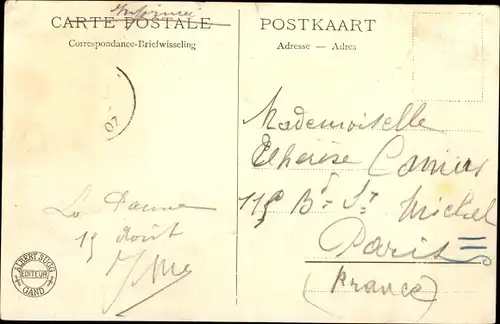 Imprimé
CARTE POSTALE
Correspondance-Briefwisseling
07
La Panne
19 Août
ALBERT SUGG
EDITEUR
GAND
POSTKAART
Adresse — Adres
Mademoiselle
Thérèse
115 Bd St Michel
Paris
(France)